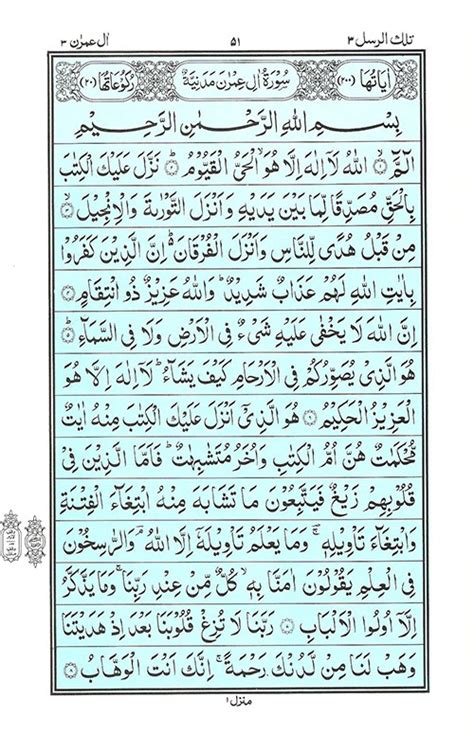 تلك الرسل ٣ ٥١ ال عمرٰن ٣
اٰیَاتُهَا (٢٠٠) سُوْرَةُ اٰلِ عِمْرٰنَ مَدَنِیَّةٌ رُكُوْعَاتُهَا (٢٠)
بِسْمِ اللّٰهِ الرَّحْمٰنِ الرَّحِیْمِ
الٓمَّٓ ۙ۱ اللّٰهُ لَاۤ اِلٰهَ اِلَّا هُوَ ۙ الْحَیُّ الْقَیُّوْمُ ؕ۲ نَزَّلَ عَلَیْكَ الْكِتٰبَ
بِالْحَقِّ مُصَدِّقًا لِّمَا بَیْنَ یَدَیْهِ وَاَنْزَلَ التَّوْرٰىةَ وَالْاِنْجِیْلَ ۙ۳
مِنْ قَبْلُ هُدًی لِّلنَّاسِ وَاَنْزَلَ الْفُرْقَانَ ؕ۬ اِنَّ الَّذِیْنَ كَفَرُوْا
بِاٰیٰتِ اللّٰهِ لَهُمْ عَذَابٌ شَدِیْدٌ ؕ وَاللّٰهُ عَزِیْزٌ ذُو انْتِقَامٍ ؕ۴
اِنَّ اللّٰهَ لَا یَخْفٰی عَلَیْهِ شَیْءٌ فِی الْاَرْضِ وَلَا فِی السَّمَآءِ ؕ۵
هُوَ الَّذِیْ یُصَوِّرُكُمْ فِی الْاَرْحَامِ كَیْفَ یَشَآءُ ؕ لَاۤ اِلٰهَ اِلَّا هُوَ
الْعَزِیْزُ الْحَكِیْمُ ۶ هُوَ الَّذِیْۤ اَنْزَلَ عَلَیْكَ الْكِتٰبَ مِنْهُ اٰیٰتٌ
مُّحْكَمٰتٌ هُنَّ اُمُّ الْكِتٰبِ وَاُخَرُ مُتَشٰبِهٰتٌ ؕ فَاَمَّا الَّذِیْنَ فِیْ
قُلُوْبِهِمْ زَیْغٌ فَیَتَّبِعُوْنَ مَا تَشَابَهَ مِنْهُ ابْتِغَآءَ الْفِتْنَةِ
وَابْتِغَآءَ تَاْوِیْلِهٖ ۚ وَمَا یَعْلَمُ تَاْوِیْلَهٗۤ اِلَّا اللّٰهُ ۘ وَالرّٰسِخُوْنَ
فِی الْعِلْمِ یَقُوْلُوْنَ اٰمَنَّا بِهٖ ۙ كُلٌّ مِّنْ عِنْدِ رَبِّنَا ۚ وَمَا یَذَّكَّرُ
اِلَّاۤ اُولُوا الْاَلْبَابِ ۷ رَبَّنَا لَا تُزِغْ قُلُوْبَنَا بَعْدَ اِذْ هَدَیْتَنَا
وَهَبْ لَنَا مِنْ لَّدُنْكَ رَحْمَةً ۚ اِنَّكَ اَنْتَ الْوَهَّابُ ۸
منزل ١